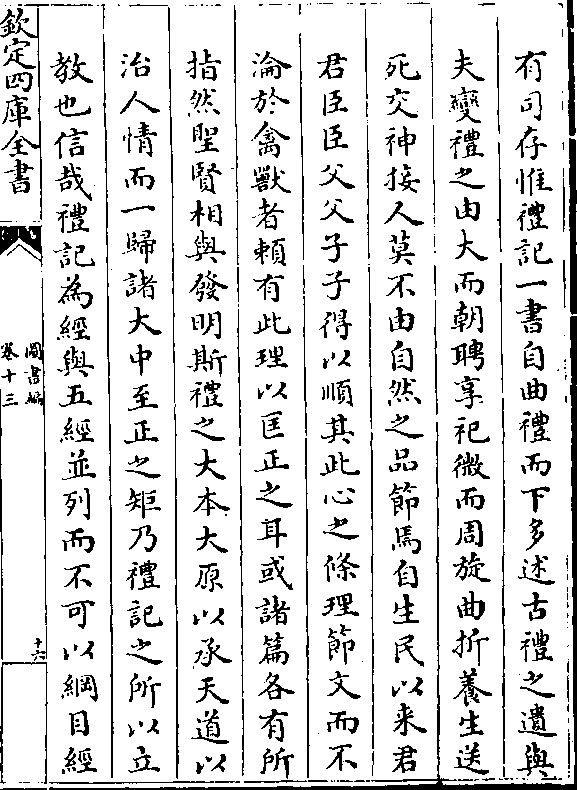 有司存惟禮記一書自曲禮而下多述古禮之遺與
夫變禮之由大而朝聘享祀微而周旋曲折養生送
死交神接人莫不由自然之品節焉自生民以来君
君臣臣父父子子得以順其此心之條理節文而不
淪於禽獸者頼有此理以匡正之耳或諸篇各有所
指然聖賢相與發明斯禮之大本大原以承天道以
治人情而一歸諸大中至正之矩乃禮記之所以立
教也信哉禮記為經與五經並列而不可以綱目經
欽定四庫全書
圖書編
卷十三
十六